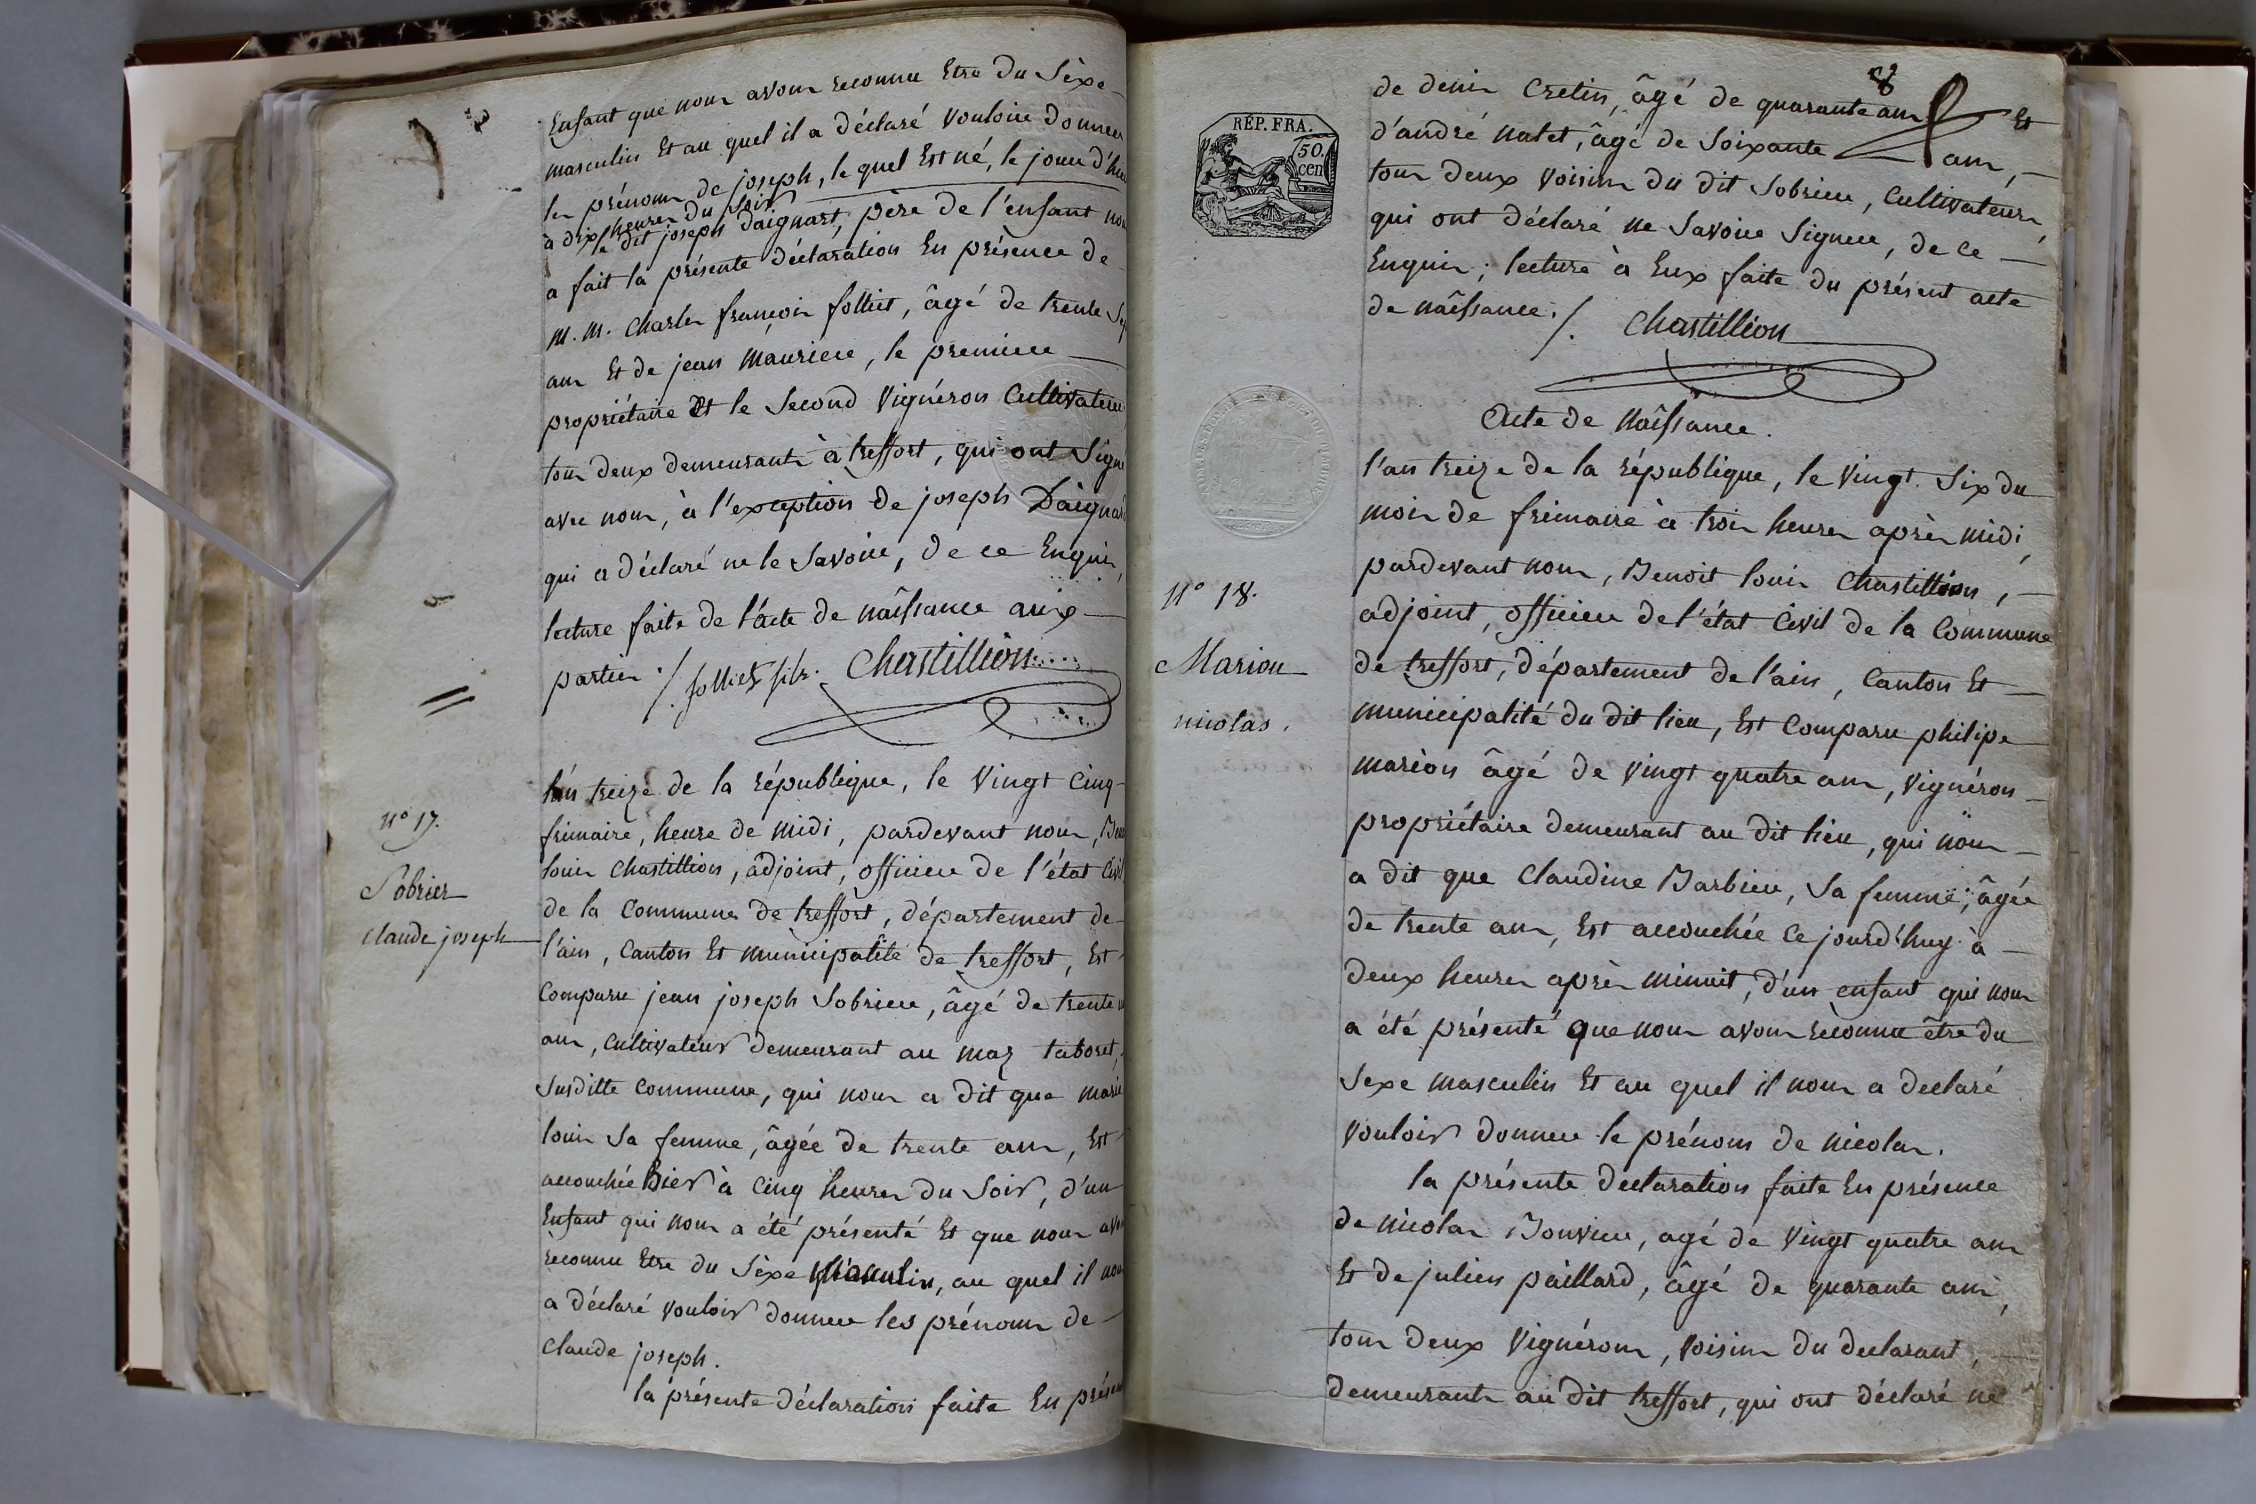 Enfant que nous avons reconnu Etre du Sèxe
masculin Et au quel il a déclaré vouloir donner
les prénoms de joseph, le quel Est né, le jour d'hier
à dix heures du soir
le dit joseph Daignart, père de l'enfant nous
a fait la présente déclaration En présence de
M. M. Charles françois folliet, âgé de trente Sept
ans Et de jean Maurier, le premier
propriétaire Et le Second Vignéron Cultivateur
tous deux demeurants à treffort, qui ont Signé
avec nous, à l'exception de joseph Daignard
qui a déclaré ne le Savoir, de ce Enquis,
lecture faite de l'acte de naîssance aux
parties ./. folliet fils. Chastillion
N° 17.
Sobrier
claude joseph
l'an treize de la république, le Vingt Cinq
frimaire, heure de midi, pardevant nous, Benoit
louis Chastillion, adjoint, officier de l'état Civil
de la Commune de treffort, département de
l'ain, Canton Et municipalité de treffort, Est
Comparu jean joseph Sobrier, âgé de trente
ans, Cultivateur demeurant au maz taboret,
Susditte Commune, qui nous a dit que marie
louis Sa femme, âgée de trente ans, Est
accouchée hier à Cinq heures du Soir, d'un
Enfant qui nous a été présenté Et que nous avons
reconnu Etre du Sèxe Masculin, au quel il nous
a déclaré vouloir donner les prénoms de
Claude joseph.
la présente déclaration faite En présence
8
de denis Cretin, âgé de quarante ans Et
d'andré natet, âgé de Soixante ans,
tous deux voisins du dit Sobrier, Cultivateurs,
qui ont déclaré ne Savoir Signer, de ce
Enquis; lecture à Eux faite du présent acte
de naîssance ./. Chastillion
RÉP. FRA.
50.
cen
Acte de naîssance.
N° 18.
Marion
nicolas.
l'an treize de la république, le Vingt Six du
mois de frimaire à trois heures après midi,
pardevant nous, Benoit louis Chastillion,
adjoint, officier de l'état Civil de la Commune
de treffort, département de l'ain, Canton Et
municipalité du dit lieu, Est Comparu philipe
marion âgé de Vingt quatre ans, Vignéron
propriétaire demeurant au dit lieu, qui nous
a dit que Claudine Barbier, Sa femme, âgée
de trente ans, Est accouchée Ce jourd'huy à
deux heures après minuit, d'un enfant qui nous
a été présenté que nous avons reconnu être du
Sexe masculin Et au quel il nous a declaré
vouloir donner le prénoms de nicolas.
la présente declaration faite En présence
de nicolas Bouvier, agé de Vingt quatre ans
Et de julien paillard, âgé de quarante ans,
tous deux Vignérons, voisins du declarant,
demeurants au dit treffort, qui ont déclaré ne